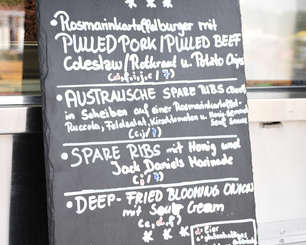 * * *
• Rosmarinkartoffelburger mit
PULLED PORK / PULLED BEEF
Coleslaw / Rotkraut u. Potato Chips
• AUSTRALISCHE SPARE RIBS
in Scheiben auf einer Rosmarinkartoffel-
Ruccola, Feldsalat, Kirschtomaten u. Honig
Sauce
• SPARE RIBS mit Honig und
Jack Daniels Marinade
• DEEP-FRIED BLOOMING ONION
mit Sour Cream
* * *
Eier